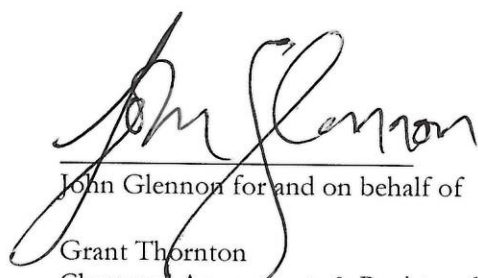 John Glennon
John Glennon for and on behalf of
Grant Thornton